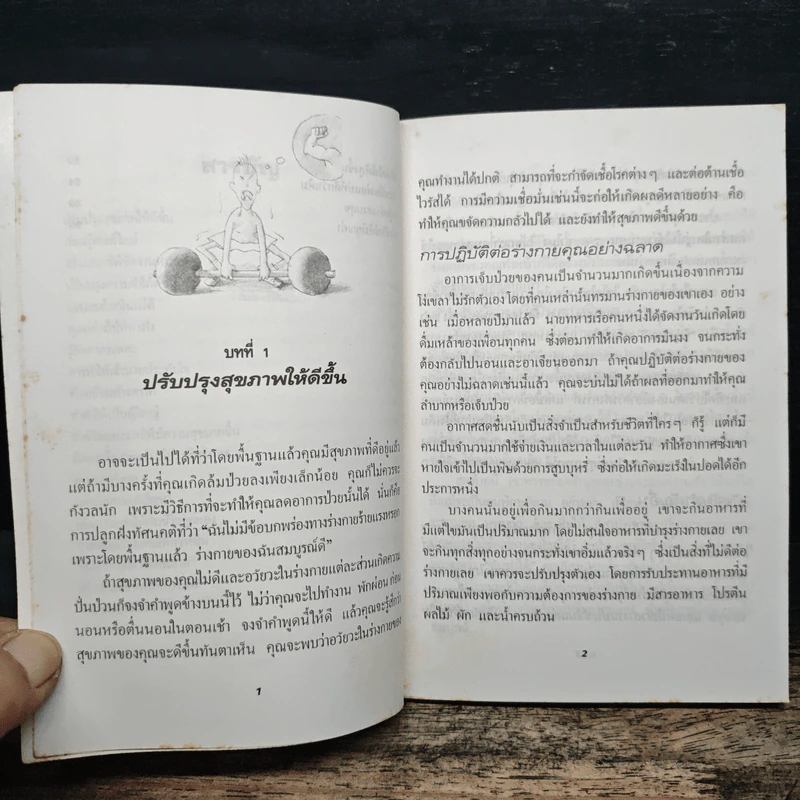 บทที่ 1
ปรับปรุงสุขภาพให้ดีขึ้น
อาจจะเป็นไปได้ที่ว่าโดยพื้นฐานแล้วคุณมีสุขภาพที่ดีอยู่แล้ว
แต่ถ้ามีบางครั้งที่คุณเกิดล้มป่วยลงเพียงเล็กน้อย คุณก็ไม่ควรจะ
กังวลนัก เพราะมีวิธีการที่จะทำให้คุณลดอาการป่วยนั้นได้ นั่นก็คือ
การปลูกฝังทัศนคติที่ว่า “ฉันไม่มีข้อบกพร่องทางร่างกายร้ายแรงหรอก
เพราะโดยพื้นฐานแล้ว ร่างกายของฉันสมบูรณ์ดี”
ถ้าสุขภาพของคุณไม่ดีและอวัยวะในร่างกายแต่ละส่วนเกิดความ
ปั่นป่วนก็จงจำคำพูดข้างบนนี้ไว้ ไม่ว่าคุณจะไปทำงาน พักผ่อน ก่อน
นอนหรือตื่นนอนในตอนเช้า จงจำคำพูดนี้ให้ดี แล้วคุณจะรู้สึกว่า
สุขภาพของคุณจะดีขึ้นทันตาเห็น คุณจะพบว่าอวัยวะในร่างกายของ
1
คุณทำงานได้ปกติ สามารถที่จะกำจัดเชื้อโรคต่างๆ และต่อต้านเชื้อ
ไวรัสได้ การมีความเชื่อมั่นเช่นนี้จะก่อให้เกิดผลดีหลายอย่าง คือ
ทำให้คุณขจัดความกลัวไปได้ และยังทำให้สุขภาพดีขึ้นด้วย
การปฏิบัติต่อร่างกายคุณอย่างฉลาด
อาการเจ็บป่วยของคนเป็นจำนวนมากเกิดขึ้นเนื่องจากความ
โง่เขลาไม่รักตัวเอง โดยที่คนเหล่านั้นทรมานร่างกายของเขาเอง อย่าง
เช่น เมื่อหลายปีมาแล้ว นายทหารเรือคนหนึ่งได้จัดงานวันเกิดโดย
ดื่มเหล้าของเพื่อนทุกคน ซึ่งต่อมาทำให้เกิดอาการมึนงง จนกระทั่ง
ต้องกลับไปนอนและอาเจียนออกมา ถ้าคุณปฏิบัติต่อร่างกายของ
คุณอย่างไม่ฉลาดเช่นนี้แล้ว คุณจะบ่นไม่ได้ถ้าผลที่ออกมาทำให้คุณ
ลำบากหรือเจ็บป่วย
อากาศสดชื่นนับเป็นสิ่งจำเป็นสำหรับชีวิตที่ใครๆ ก็รู้ แต่ก็มี
คนเป็นจำนวนมากใช้จ่ายเงินและเวลาในแต่ละวัน ทำให้อากาศซึ่งเขา
หายใจเข้าไปเป็นพิษด้วยการสูบบุหรี่ ซึ่งก่อให้เกิดมะเร็งในปอดได้อีก
ประการหนึ่ง
บางคนนั้นอยู่เพื่อกินมากกว่ากินเพื่ออยู่ เขาจะกินอาหารที่
มีแต่ไขมันเป็นปริมาณมาก โดยไม่สนใจอาหารที่บำรุงร่างกายเลย เขา
จะกินทุกสิ่งทุกอย่างจนกระทั่งเขาอิ่มแล้วจริงๆ ซึ่งเป็นสิ่งที่ไม่ดีต่อ
ร่างกายเลย เขาควรจะปรับปรุงตัวเอง โดยการรับประทานอาหารที่มี
ปริมาณเพียงพอกับความต้องการของร่างกาย มีสารอาหาร โปรตีน
ผลไม้ ผัก และน้ำครบถ้วน
2